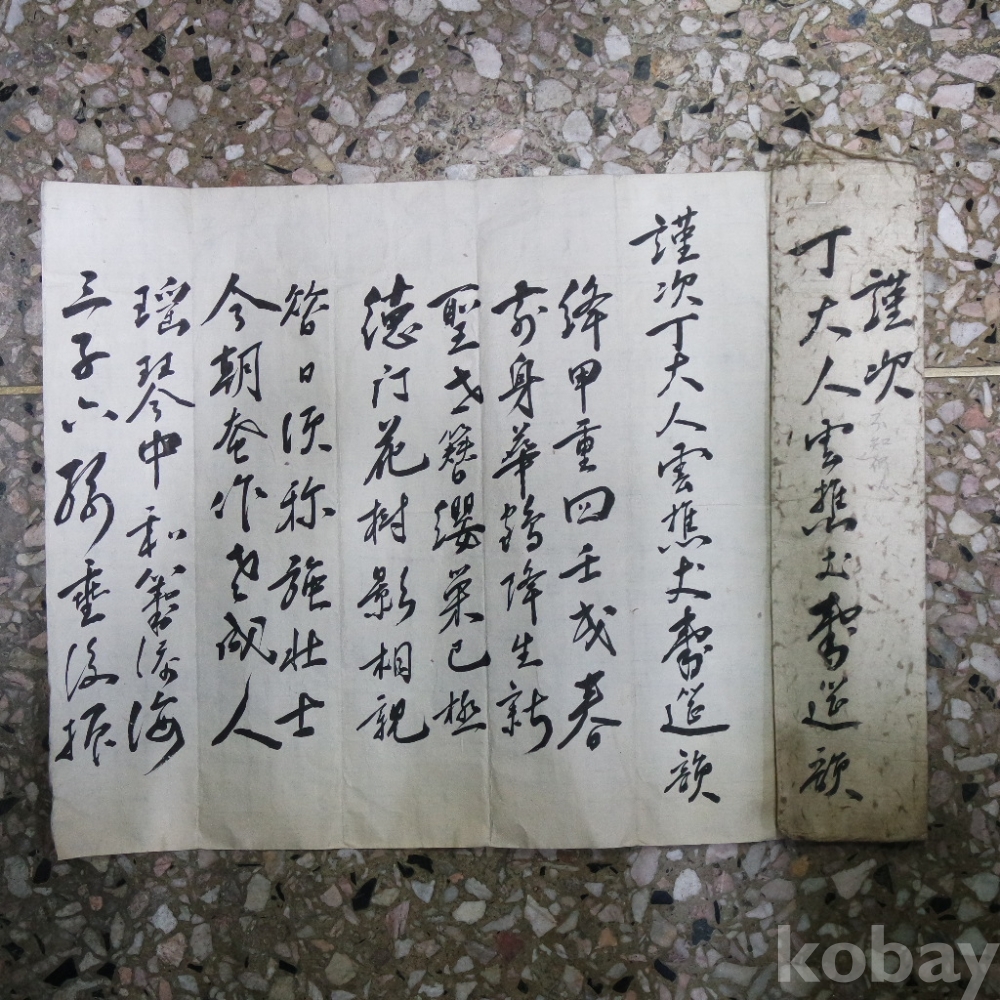 謹次
丁大人雲樵丈壽筵韻
謹次丁大人雲樵丈壽筵韻
絳甲重回壬戌春
前身華鶴降生新
聖世簪纓榮已極
德门花樹影相親
昔日須称強壯士
今朝奄作老成人
瑤琴中和籌添海
三子六孫垂後振
kobay